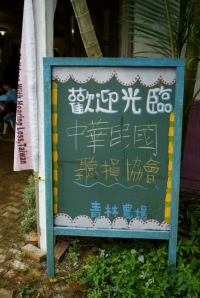 歡迎光臨
中華民國
聽損協會
青林農場
with Hearing Loss,Taiwan